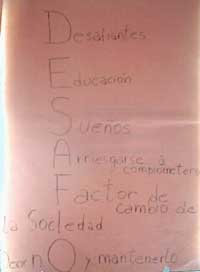 Desafiantes
Educación
Sueños
Arriesgarse a
comprometers
Factor de
cambio de
la Sociedad
Decir nO y mantenerlo